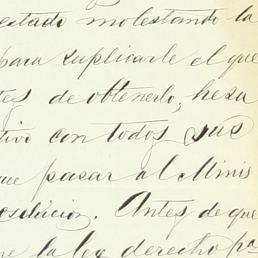 estado molestando la
para suplicarle el que
tes de obtenerlo, hera
tivo con todos sus
que pasar al Minis
esolucion. Antes de que
ne la ley derecho pa